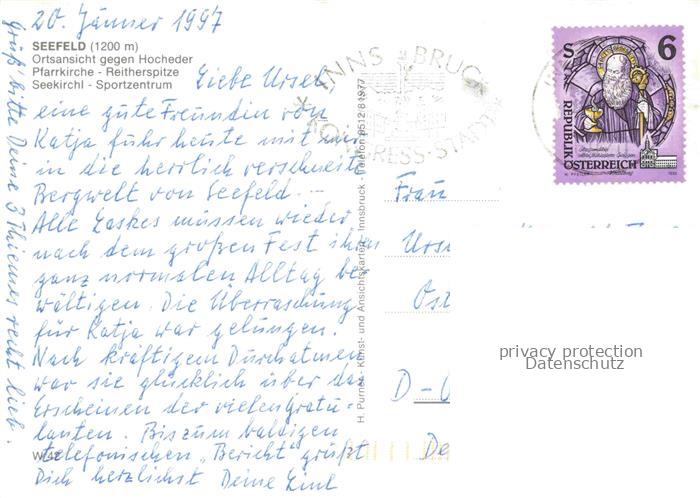 20. Jänner 1997
SEEFELD (1200 m)
Ortsansicht gegen Hocheder
Pfarrkirche - Reitherspitze
Seekirchl - Sportzentrum
Liebe Ursel
eine gute Freundin von
Katja fuhr heute mit mir
in die herrlich verschneite
Bergwelt von Seefeld.
Alle Gaskes müssen wieder
nach dem großen Fest ihren
ganz normalen Alltag be
wältigen. Die Überraschung
für Katja war gelungen.
Nach kräftigem Durchatmen
war sie glücklich über das
Erscheinen der vielen Gratu-
lanten. Bis zum baldigen
telefonischen "Bericht" grüßt
Dich herzlichst Deine
Grüß' bitte Deine 3 recht lieb.
H. Purner, Kunst- und Ansichtskarten, Innsbruck - Telefon 0512 81977
INNSBRUCK
KONGRESS-STADT
S 6
REPUBLIK
ÖSTERREICH
Frau
Urs
Ost
D-
De
privacy protection
Datenschutz